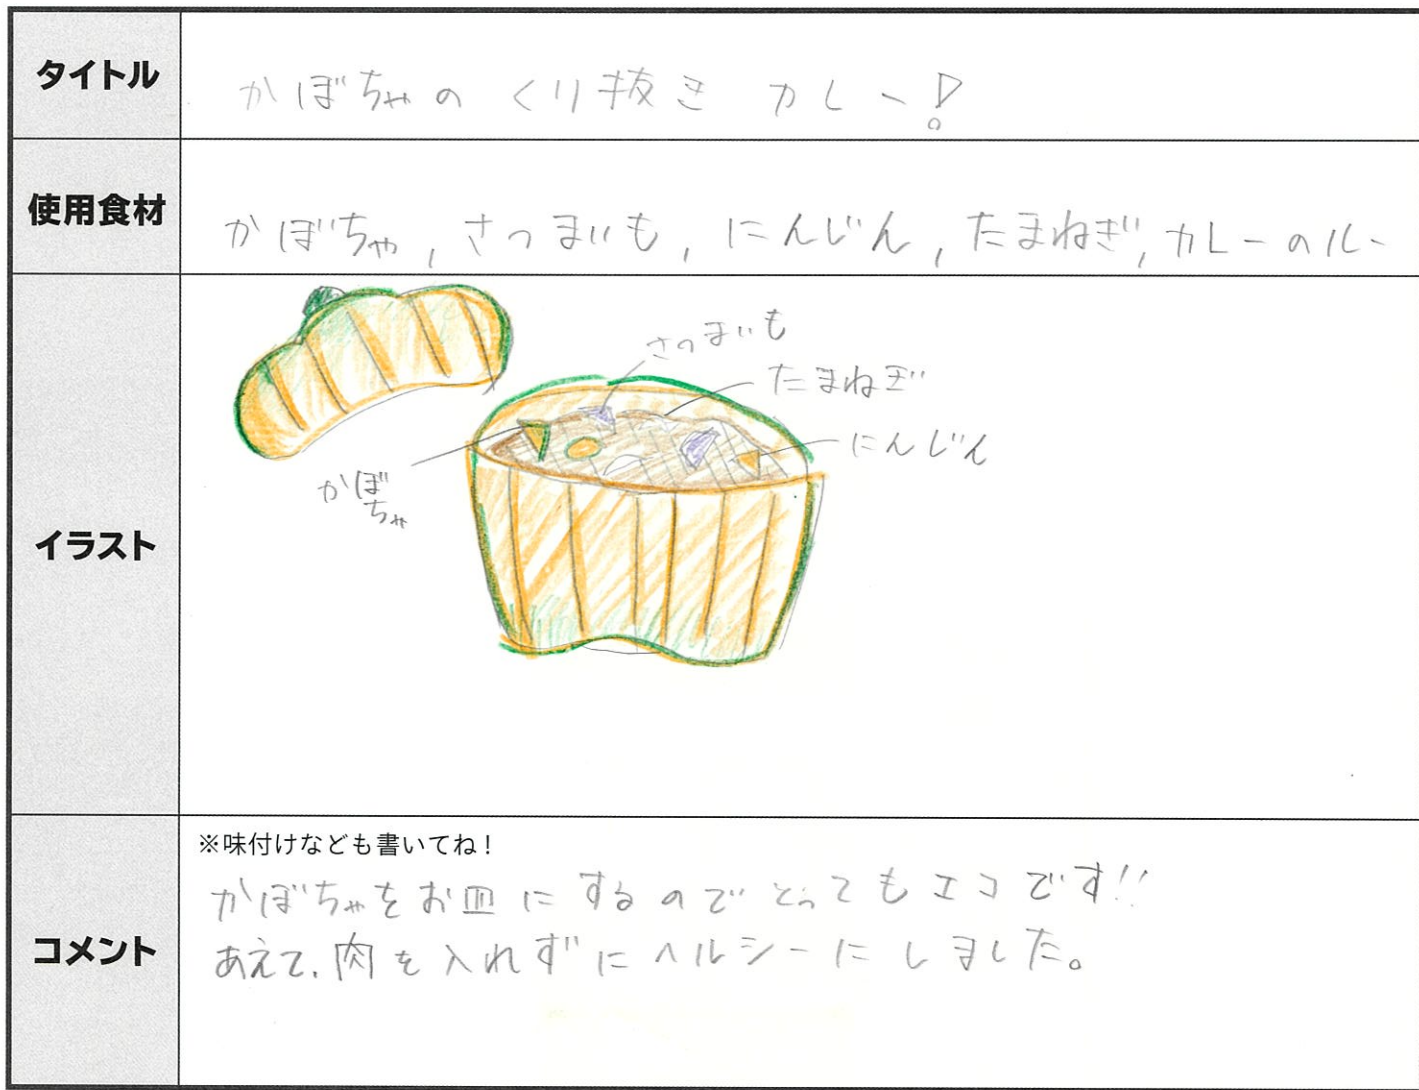 タイトル
かぼちゃのくり抜きカレー!
使用食材
かぼちゃ,さつまいも,にんじん,たまねぎ,カレーのルー
イラスト
さつまいも
たまねぎ
にんじん
かぼ
ちゃ
コメント
※味付けなども書いてね!
かぼちゃをお皿にするのでとってもエコです!!
あえて、肉を入れずにヘルシーにしました。